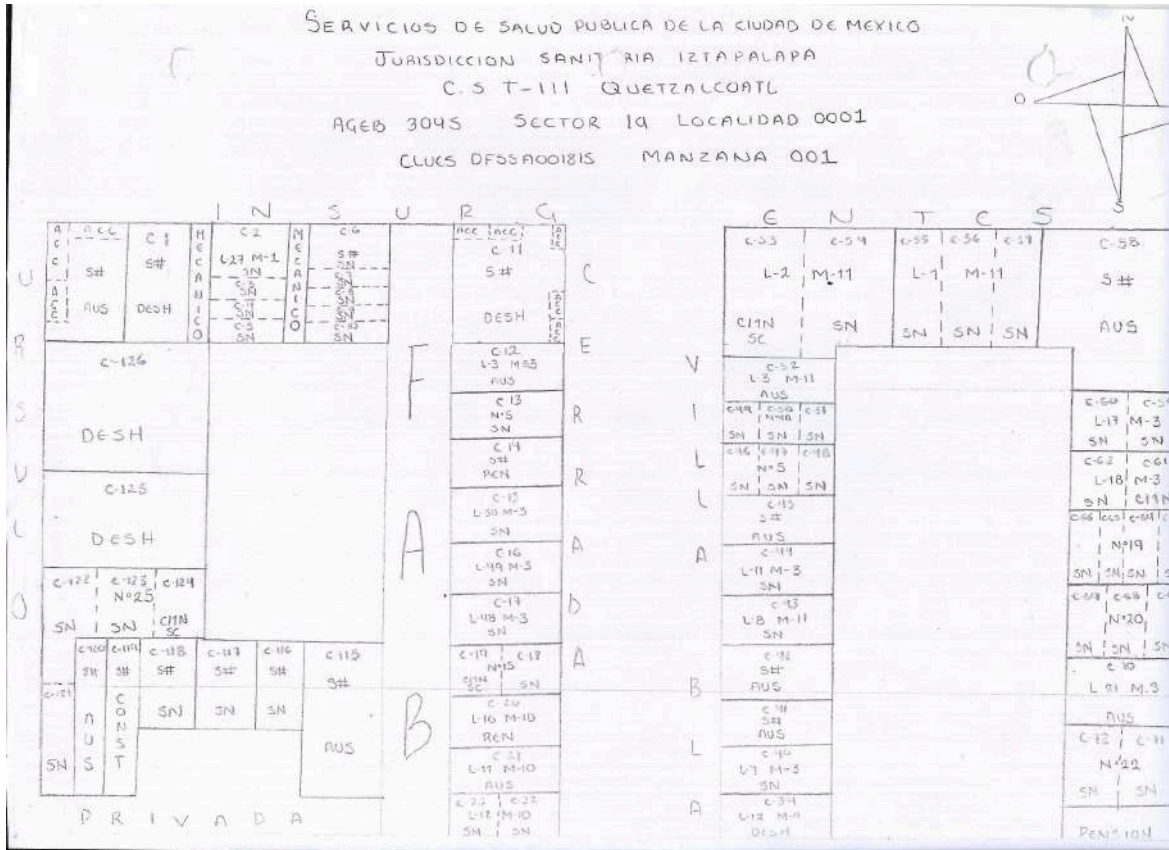 SERVICIOS DE SALUD PUBLICA DE LA CIUDAD DE MEXICO
JURISDICCION SANIT RIA IZTAPALAPA
C.S T-III QUETZALCOATL
AGEB 3045 SECTOR 19 LOCALIDAD 0001
CLUES DFSSA001815 MANZANA 001
N
O
S
INSURGENTES
URSULO
ACC
ACC
ACC
S#
AUS
C 1
S#
DESH
MECANICO
C-2
L-27 M-1
SN
SN
SN
C-5
SN
MECANICO
C-6
S#
SN
SN
SN
SN
SN
ACC ACC
C-11
S#
DESH
C-126
DESH
C-125
DESH
C-122 C-123 C-124
Nº25
SN SN C/1N
SC
C-120 C-119 C-118 C-117 C-116 C-115
S# S# S# S# S# S#
C-121
SN
AUS
CONST
SN SN SN
AUS
PRIVADA
F
A
B
C-12
L-3 M-53
AUS
C 13
Nº5
SN
C 14
S#
REN
C-15
L-50 M-3
SN
C 16
L-49 M-3
SN
C-17
L-48 M-3
SN
C-19 C-18
Nº15
C/1N SN
SC
C-20
L-10 M-10
REN
C 21
L-11 M-10
AUS
C-23 C-22
L-12 M-10
SN SN
CERRADA
C-53 C-54
L-2 M-11
C/1N SN
SC
C-55 C-56 C-57
L-1 M-11
SN SN SN
C-58
S#
AUS
C-52
L-3 M-11
AUS
C-49 C-50 C-51
SN SN SN
C-46 C-47 C-48
Nº5
SN SN SN
C-45
S#
AUS
C-44
L-11 M-3
SN
C-43
L-8 M-11
SN
S#
AUS
C 41
S#
AUS
C-40
L-7 M-3
SN
C-39
L-12 M-11
DESH
VILLA
BLA
L-17 M-3
SN SN
C-62 C-61
L-18 M-3
SN C/1N
C-66 C-65 C-64
Nº19
SN SN SN
C-68
Nº20
SN SN
C 70
L 21 M.3
AUS
C-72 C-71
Nº22
SN SN
PENSION